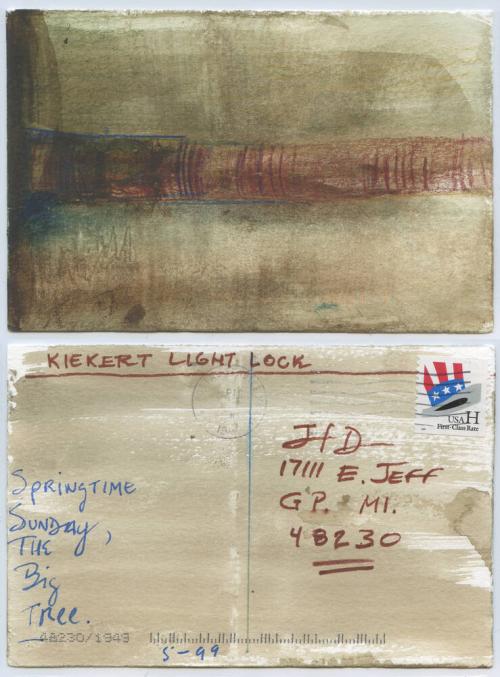 KIEKERT LIGHT LOCK
USA H
First-Class Rate
JfD
17111 E. JEFF
G.P. MI.
48230
SPRINGTIME
SUNDAY,
THE
Big
Tree.
48230/1949
5-99